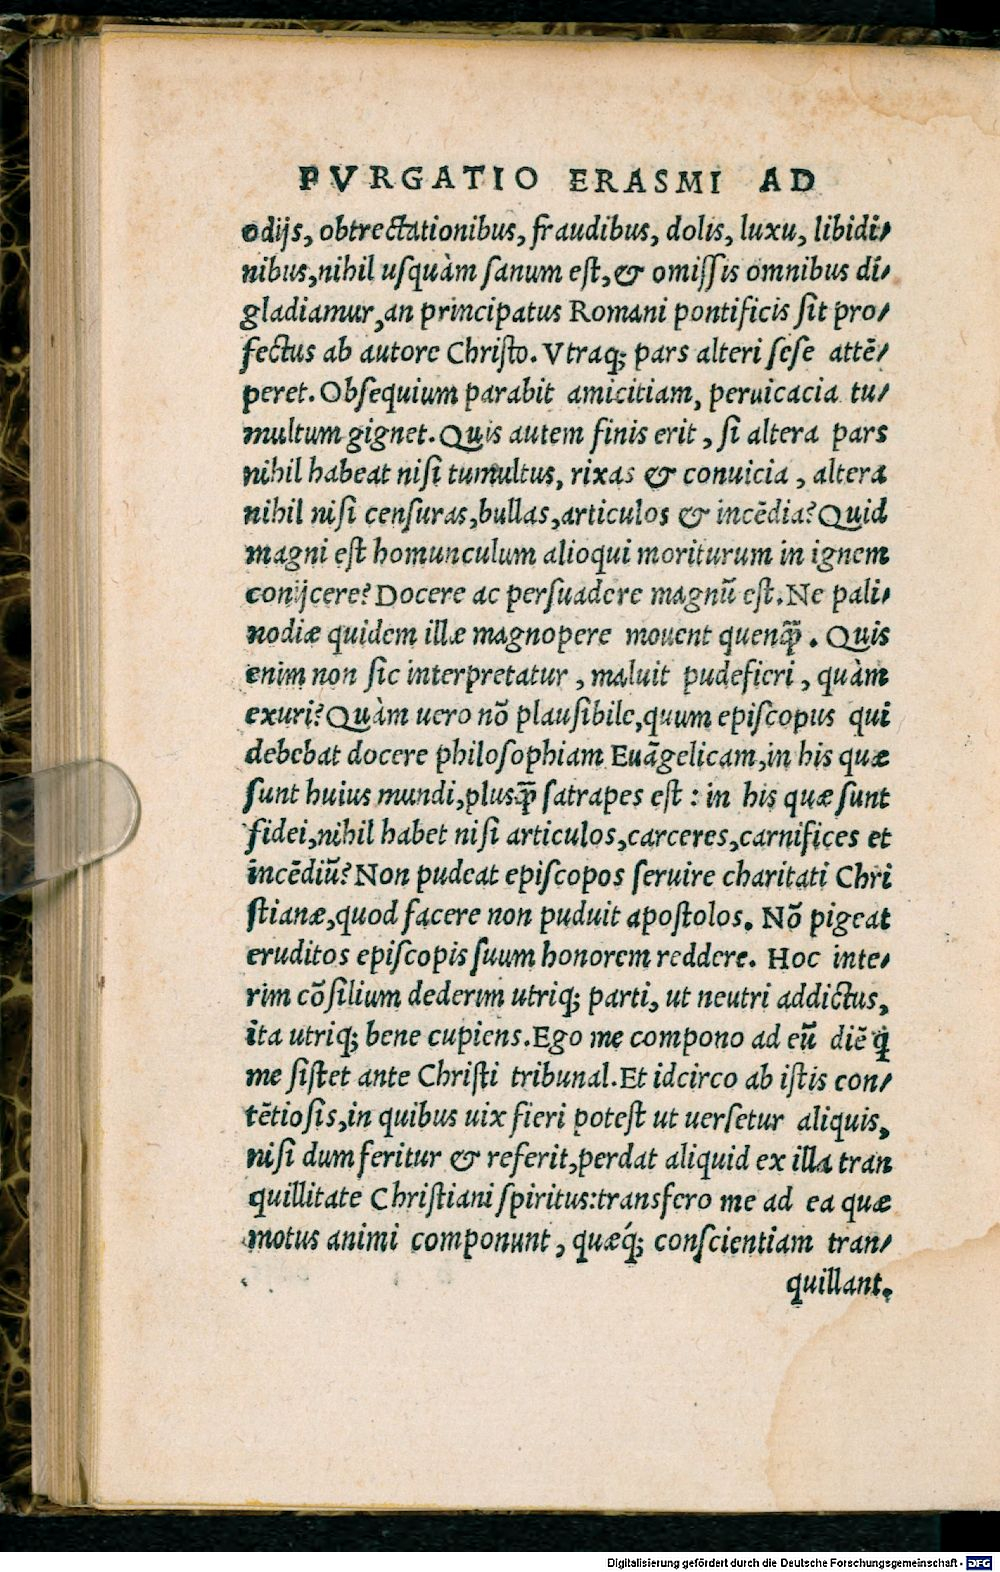 PVRGATIO ERASMI AD
odijs, obtrectationibus, fraudibus, dolis, luxu, libidi-
nibus,nihil usquàm sanum est,& omissis omnibus di-
gladiamur,an principatus Romani pontificis sit pro-
fectus ab autore Christo. Vtraq; pars alteri sese attē-
peret. Obsequium parabit amicitiam, peruicacia tu-
multum gignet. Quis autem finis erit, si altera pars
nihil habeat nisi tumultus, rixas & conuicia, altera
nihil nisi censuras,bullas,articulos & incēdia? Quid
magni est homunculum alioqui moriturum in ignem
conijcere? Docere ac persuadere magnū est. Ne pali-
nodiæ quidem illæ magnopere mouent quenq̃. Quis
enim non sic interpretatur, maluit pudefieri, quàm
exuri? Quàm uero nō plausibile,quum episcopus qui
debebat docere philosophiam Euāgelicam,in his quæ
sunt huius mundi,plusq̃ satrapes est: in his quæ sunt
fidei,nihil habet nisi articulos,carceres,carnifices et
incēdiū? Non pudeat episcopos seruire charitati Chri
stianæ,quod facere non puduit apostolos. Nō pigeat
eruditos episcopis suum honorem reddere. Hoc inte-
rim cōsilium dederim utriq; parti, ut neutri addictus,
ita utriq; bene cupiens. Ego me compono ad eū diē q̇
me sistet ante Christi tribunal. Et idcirco ab istis con-
tētiosis,in quibus uix fieri potest ut uersetur aliquis,
nisi dum feritur & referit,perdat aliquid ex illa tran
quillitate Christiani spiritus:transfero me ad ea quæ
motus animi componunt, quæq́; conscientiam tran-
quillant.
Digitalisierung gefördert durch die Deutsche Forschungsgemeinschaft - DFG